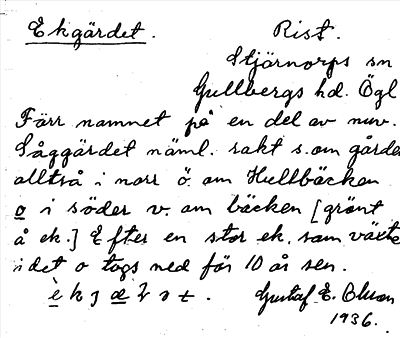 Ekgärdet. Rist.
Stjärnorps sn
Gullbergs hd. Ögl
Förr namnet på en del av nuv.
Såggärdet näml. rakt s. om gården
alltså i norr ö. om Hullbäcken
o i söder v. om bäcken [grönt
å ek.] Efter en stor ek, som växte
i det o togs ned för 10 år sen.
Gustaf E. Olson
1936.